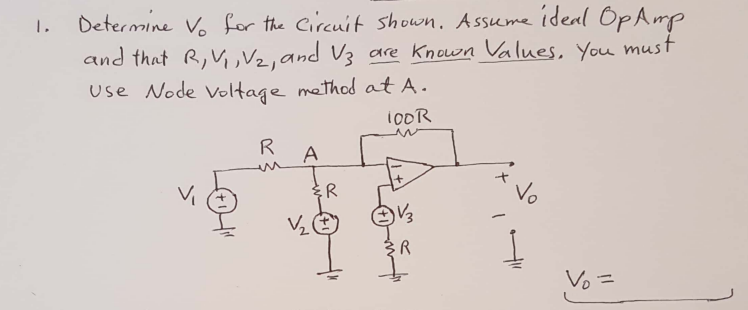 1. Determine Vo for the Circuit shown. Assume ideal OpAmp
and that R, V1, V2, and V3 are Known Values. You must
Use Node Voltage method at A.
100R
R A
R
V1 + −
V2 + −
− +
+ − V3
R
+ Vo −
Vo =